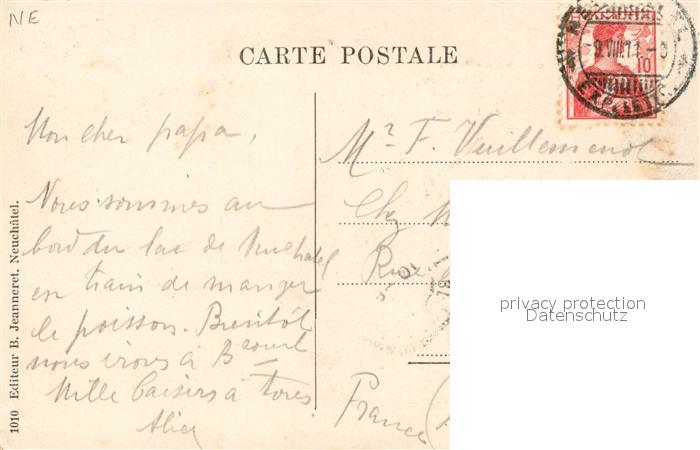 NE
CARTE POSTALE
9.VIII.11.-
EXP. LETT.
10
Mon cher papa,
Nous sommes au
bord du lac de Neuchatel
en train de manger
le poisson. Bientôt
nous irons à Bcourt
Mille baisers à tous
Alice
Mr F. Vuillemenot
Chez
Rue
France
1010 Editeur B. Jeanneret, Neuchâtel.
privacy protection
Datenschutz